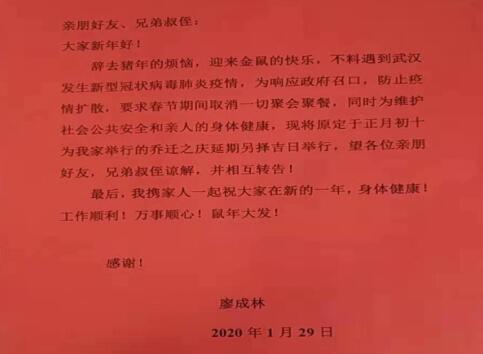 亲朋好友、兄弟叔侄：
大家新年好！
辞去猪年的烦恼，迎来金鼠的快乐，不料遇到武汉
发生新型冠状病毒肺炎疫情，为响应政府召口，防止疫
情扩散，要求春节期间取消一切聚会聚餐，同时为维护
社会公共安全和亲人的身体健康，现将原定于正月初十
为我家举行的乔迁之庆延期另择吉日举行，望各位亲朋
好友，兄弟叔侄谅解，并相互转告！
最后，我携家人一起祝大家在新的一年，身体健康！
工作顺利！万事顺心！鼠年大发！
感谢！
廖成林
2020 年 1 月 29 日